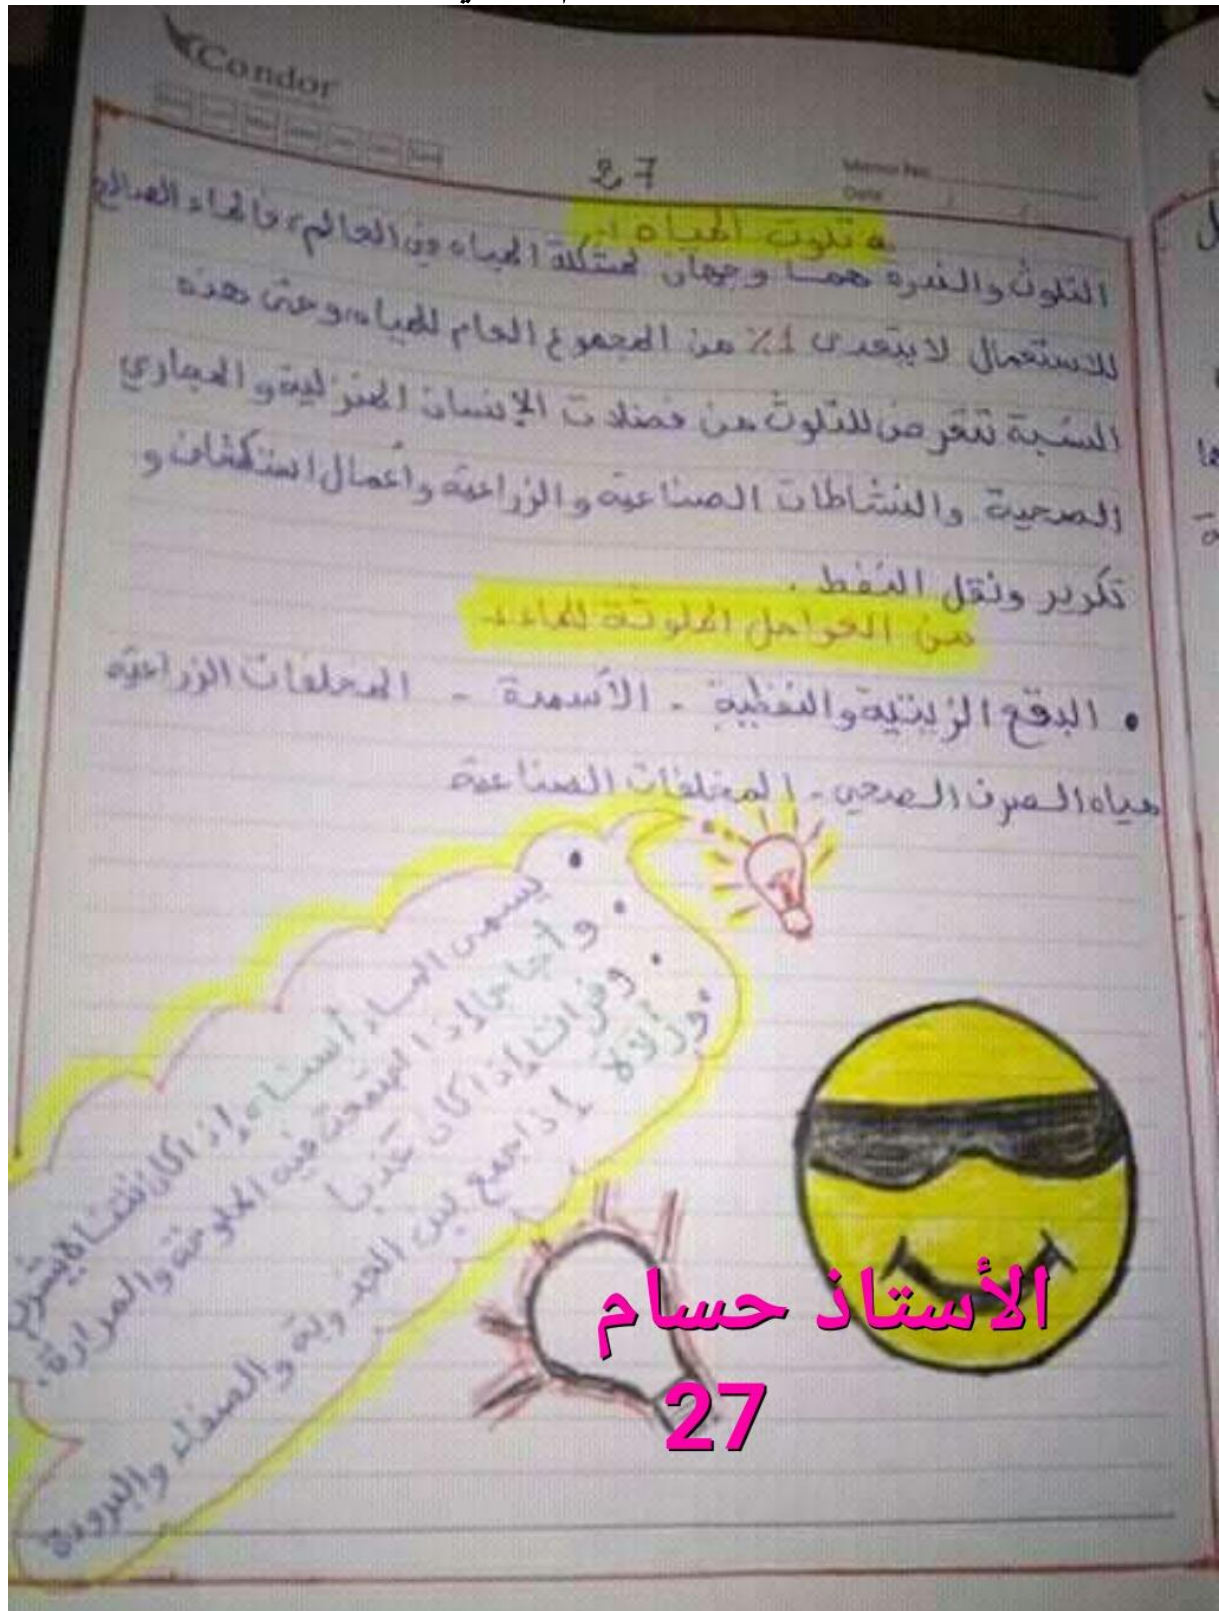 Condor
Memo No.
Date / /
27
تلوث المياه :
التلوث والندرة هما وجهان لمشكلة المياه في العالم، فالماء الصالح
للاستعمال لا يتعدى 1% من المجموع العام للمياه، وحتى هذه
النسبة تتعرض للتلوث من فضلات الإنسان المنزلية والمجاري
الصحية والنشاطات الصناعية والزراعية وأعمال استكشاف و
تكرير ونقل النفط .
من العوامل الملوثة للماء :
• البقع الزيتية والنفطية - الأسمدة - المخلفات الزراعية
مياه الصرف الصحي - المخلفات الصناعية
• يسمى الماء إذا كان يشرب
• وأجاجا إذا اجتمعت فيه الملوحة والمرارة.
• وفراتا إذا كان عذبا
• وزلالا إذا جمع بين العذوبة والصفاء والبرودة
الأستاذ حسام
27